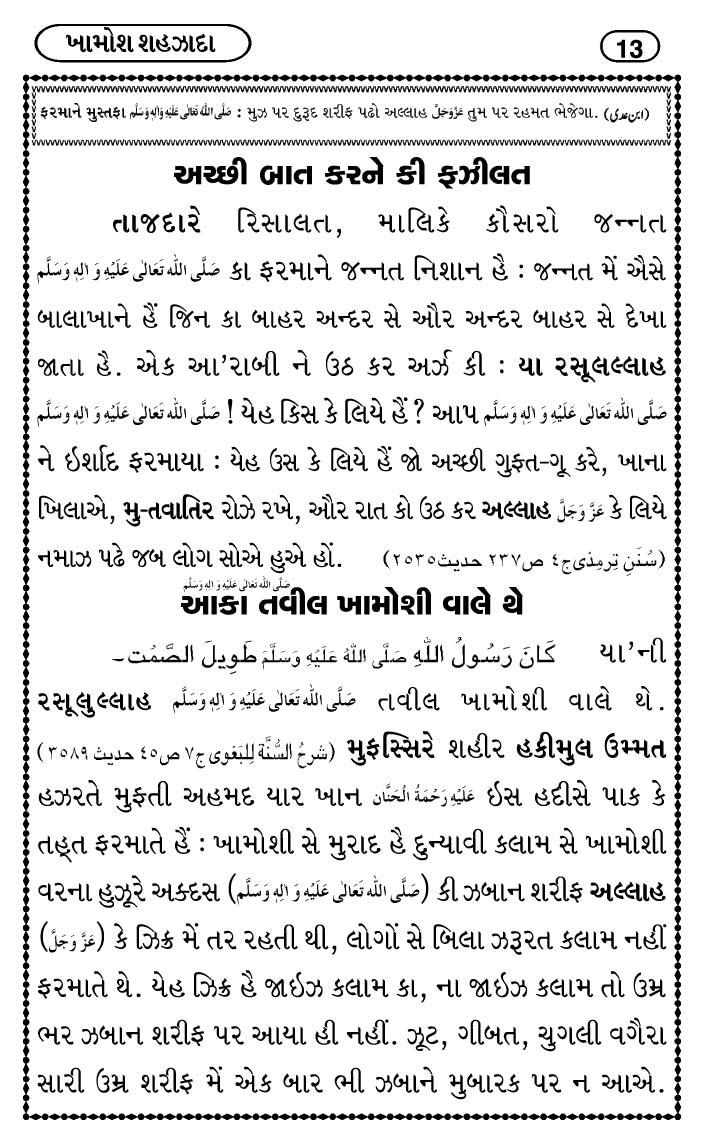 ખામોશ શહઝાદા
13
ફરમાને મુસ્તફા صَلَّى اللهُ تَعَالٰى عَلَيْهِ وَاٰلِهٖ وَسَلَّم : મુઝ પર દુરૂદ શરીફ પઢો અલ્લાહ عَزَّوَجَلَّ તુમ પર રહમત ભેજેગા. (ابن عدی)
અચ્છી બાત કરને કી ફઝીલત
તાજદારે રિસાલત, માલિકે કૌસરો જન્નત
صَلَّى اللهُ تَعَالٰى عَلَيْهِ وَاٰلِهٖ وَسَلَّم કા ફરમાને જન્નત નિશાન હૈ : જન્નત મેં ઐસે
બાલાખાને હૈં જિન કા બાહર અન્દર સે ઔર અન્દર બાહર સે દેખા
જાતા હૈ. એક આ'રાબી ને ઉઠ કર અર્ઝ કી : યા રસૂલલ્લાહ
صَلَّى اللهُ تَعَالٰى عَلَيْهِ وَاٰلِهٖ وَسَلَّم ! યેહ કિસ કે લિયે હૈં? આપ صَلَّى اللهُ تَعَالٰى عَلَيْهِ وَاٰلِهٖ وَسَلَّم
ને ઇર્શાદ ફરમાયા : યેહ ઉસ કે લિયે હૈં જો અચ્છી ગુફ્ત-ગૂ કરે, ખાના
ખિલાએ, મુ-તવાતિર રોઝે રખે, ઔર રાત કો ઉઠ કર અલ્લાહ عَزَّوَجَلَّ કે લિયે
નમાઝ પઢે જબ લોગ સોએ હુએ હોં. (سُنَنِ تِرمِذی ج٤ ص٢٣٧ حدیث ٢٥٣٥)
આકા صَلَّى اللهُ تَعَالٰى عَلَيْهِ وَاٰلِهٖ وَسَلَّم તવીલ ખામોશી વાલે થે
كَانَ رَسُوْلُ اللهِ صَلَّى اللهُ عَلَيْهِ وَسَلَّمَ طَوِيلَ الصَّمْت ـ યા'ની
રસૂલુલ્લાહ صَلَّى اللهُ تَعَالٰى عَلَيْهِ وَاٰلِهٖ وَسَلَّم તવીલ ખામોશી વાલે થે.
(شرحُ السُّنَّة لِلبَغوی ج٧ ص٤٥ حدیث ٣٥٨٩) મુફસ્સિરે શહીર હકીમુલ ઉમ્મત
હઝરતે મુફ્તી અહમદ યાર ખાન عَلَيْهِ رَحْمَةُ الْحَنَّان ઇસ હદીસે પાક કે
તહ્ત ફરમાતે હૈં : ખામોશી સે મુરાદ હૈ દુન્યાવી કલામ સે ખામોશી
વરના હુઝૂરે અક્દસ (صَلَّى اللهُ تَعَالٰى عَلَيْهِ وَاٰلِهٖ وَسَلَّم) કી ઝબાન શરીફ અલ્લાહ
(عَزَّوَجَلَّ) કે ઝિક્ર મેં તર રહતી થી, લોગોં સે બિલા ઝરૂરત કલામ નહીં
ફરમાતે થે. યેહ ઝિક્ર હૈ જાઇઝ કલામ કા, ના જાઇઝ કલામ તો ઉમ્ર
ભર ઝબાન શરીફ પર આયા હી નહીં. ઝૂટ, ગીબત, ચુગલી વગૈરા
સારી ઉમ્ર શરીફ મેં એક બાર ભી ઝબાને મુબારક પર ન આએ.